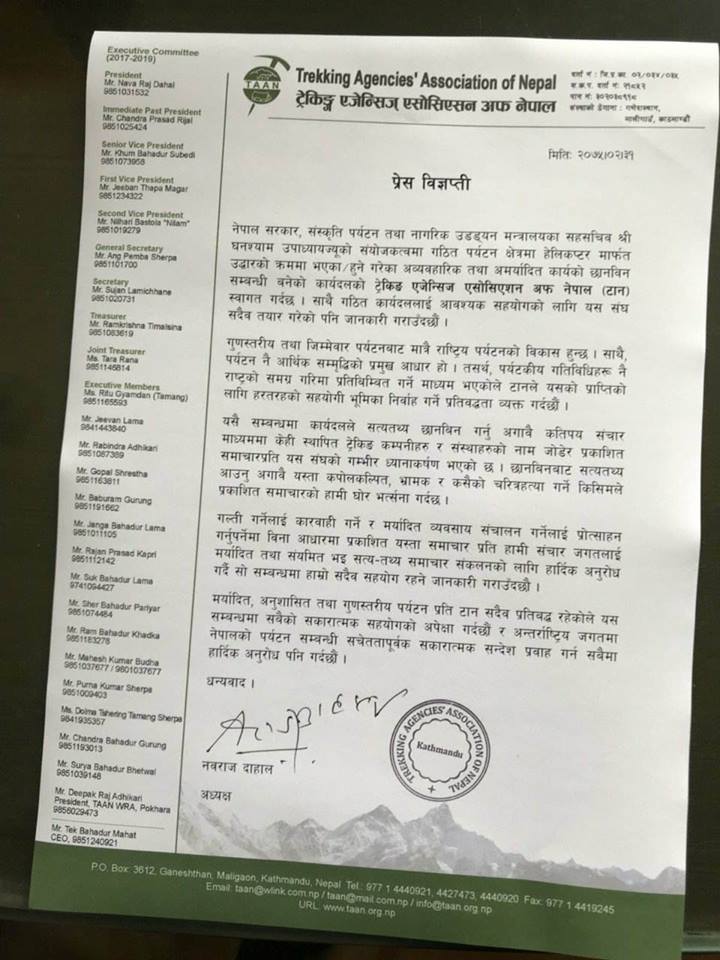 Executive Committee
(2017-2019)
President
Mr. Nava Raj Dahal
9851031532
Immediate Past President
Mr. Chandra Prasad Rijal
9851025424
Senior Vice President
Mr. Khum Bahadur Subedi
9851073958
First Vice President
Mr. Jeeban Thapa Magar
9851234322
Second Vice President
Mr. Nilhari Bastola "Nilam"
9851019279
General Secretary
Mr. Ang Pemba Sherpa
9851101700
Secretary
Mr. Sujan Lamichhane
9851020731
Treasurer
Mr. Ramkrishna Timalsina
9851083619
Joint Treasurer
Ms. Tara Rana
9851146814
Executive Members
Ms. Ritu Gyamdan (Tamang)
9851165593
Mr. Jeevan Lama
9841443840
Mr. Rabindra Adhikari
9851087389
Mr. Gopal Shrestha
9851163811
Mr. Baburam Gurung
9851191662
Mr. Janga Bahadur Lama
9851011105
Mr. Rajan Prasad Kapri
9851112142
Mr. Suk Bahadur Lama
9741094427
Mr. Sher Bahadur Pariyar
9851074484
Mr. Ram Bahadur Khadka
9851183278
Mr. Mahesh Kumar Budha
9851037677 / 9801037677
Mr. Purna Kumar Sherpa
9851009403
Ms. Dolma Tshering Tamang Sherpa
9841935357
Mr. Chandra Bahadur Gurung
9851193013
Mr. Surya Bahadur Bhetwal
9851039148
Mr. Deepak Raj Adhikari
President, TAAN WRA, Pokhara
9856029473
Mr. Tek Bahadur Mahat
CEO, 9851240921
TAAN
Trekking Agencies' Association of Nepal
ट्रेकिङ्ग एजेन्सिज् एसोसिएसन अफ नेपाल
दर्ता नं : जि.प्र.का ०२/०३४/०३५
स.क.प. दर्ता नं: २१८५२
पान नं: ३०२०३८९९८
संस्थाको ठेगाना : गणेशस्थान,
मालीगाउँ, काठमाण्डौ
मिति: २०७५।०२।३१
प्रेस विज्ञप्ती
नेपाल सरकार, संस्कृति पर्यटन तथा नागरिक उडड्यन मन्त्रालयका सहसचिव श्री
घनश्याम उपाध्यायज्यूको संयोजकत्वमा गठित पर्यटन क्षेत्रमा हेलिकप्टर मार्फत
उद्धारको क्रममा भएका/हुने गरेका अव्यवहारिक तथा अमर्यादित कार्यको छानविन
सम्बन्धी बनेको कार्यदलको ट्रेकिङ एजेन्सिज एसोसिएशन अफ नेपाल (टान)
स्वागत गर्दछ । साथै गठित कार्यदललाई आवश्यक सहयोगको लागि यस संघ
सदैव तयार गरेको पनि जानकारी गराउँदछौं ।
गुणस्तरीय तथा जिम्मेवार पर्यटनबाट मात्रै राष्ट्रिय पर्यटनको विकास हुन्छ । साथै,
पर्यटन नै आर्थिक सम्मृद्धिको प्रमुख आधार हो । तसर्थ, पर्यटकीय गतिविधिहरू नै
राष्ट्रको समग्र गरिमा प्रतिविम्वित गर्ने माध्यम भएकोले टानले यसको प्राप्तिको
लागि हरतरहको सहयोगी भूमिका निर्वाह गर्ने प्रतिवद्धता व्यक्त गर्दछौं ।
यसै सम्बन्धमा कार्यदलले सत्यतथ्य छानबिन गर्नु अगावै कतिपय संचार
माध्यममा केही स्थापित ट्रेकिङ कम्पनीहरु र संस्थाहरुको नाम जोडेर प्रकाशित
समाचारप्रति यस संघको गम्भीर ध्यानाकर्षण भएको छ । छानबिनबाट सत्यतथ्य
आउनु अगावै यस्ता कपोलकल्पित, भ्रामक र कसैको चरित्रहत्या गर्ने किसिमले
प्रकाशित समाचारको हामी घोर भर्त्सना गर्दछ ।
गल्ती गर्नेलाई कारवाही गर्ने र मर्यादित व्यवसाय संचालन गर्नेलाई प्रोत्साहन
गर्नुपर्नेमा विना आधारमा प्रकाशित यस्ता समाचार प्रति हामी संचार जगतलाई
मर्यादित तथा संयमित भइ सत्य-तथ्य समाचार संकलनको लागि हार्दिक अनुरोध
गर्दै सो सम्बन्धमा हाम्रो सदैव सहयोग रहने जानकारी गराउँदछौं ।
मर्यादित, अनुशासित तथा गुणस्तरीय पर्यटन प्रति टान सदैव प्रतिबद्ध रहेकोले यस
सम्बन्धमा सबैको सकारात्मक सहयोगको अपेक्षा गर्दछौं र अन्तर्राष्ट्रिय जगतमा
नेपालको पर्यटन सम्बन्धी सचेततापूर्वक सकारात्मक सन्देश प्रवाह गर्न सबैमा
हार्दिक अनुरोध पनि गर्दछौं ।
धन्यवाद ।
नवराज दाहाल
अध्यक्ष
TREKKING AGENCIES' ASSOCIATION OF NEPAL
Kathmandu
P.O. Box: 3612, Ganeshthan, Maligaon, Kathmandu, Nepal Tel.: 977 1 4440921, 4427473, 4440920 Fax: 977 1 4419245
Email: taan@wlink.com.np / taan@mail.com.np / info@taan.org.np
URL: www.taan.org.np